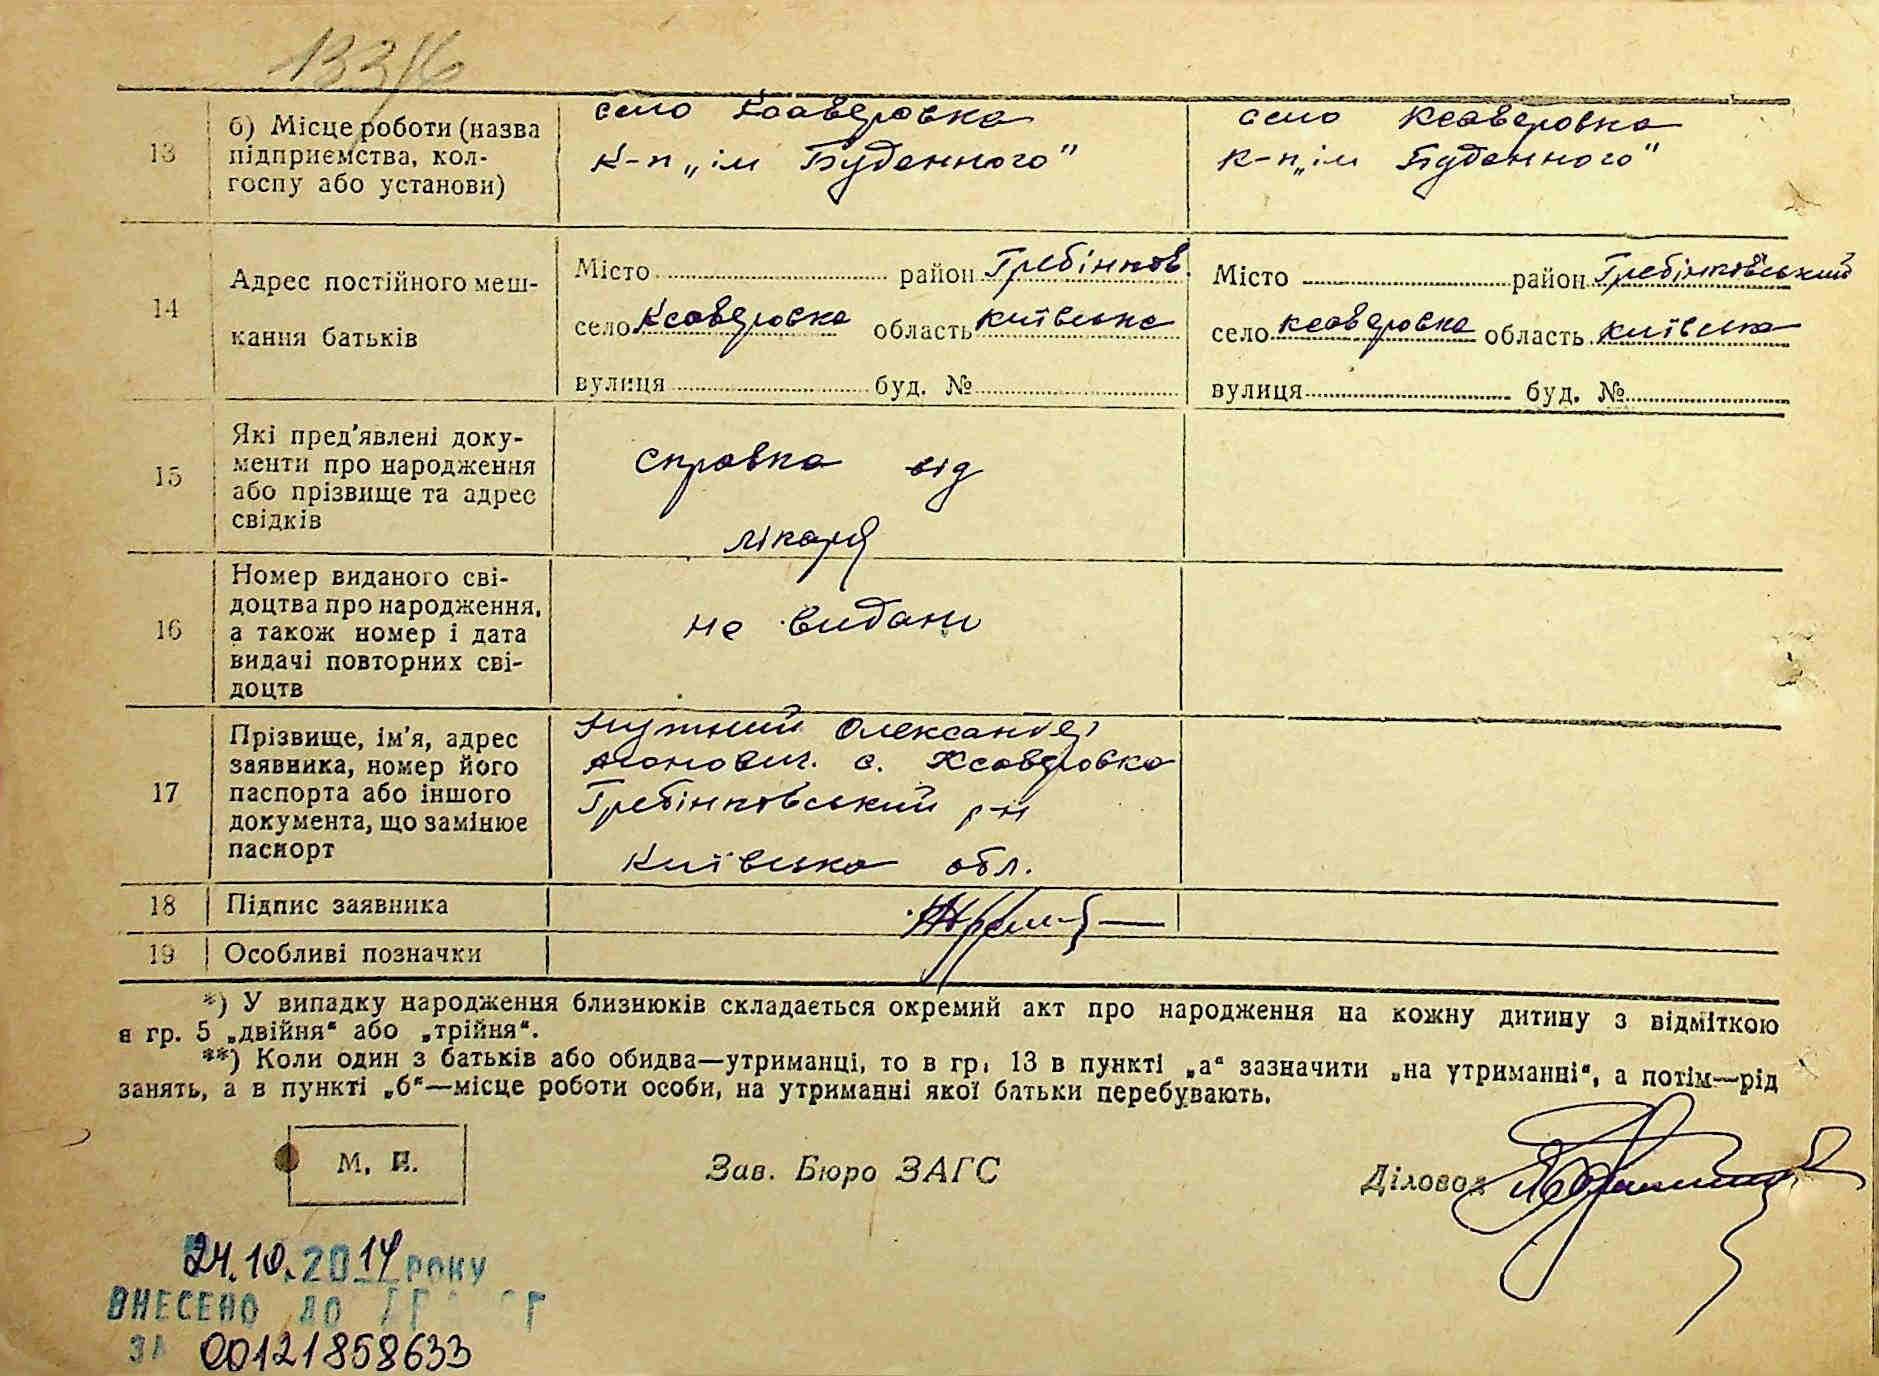 133/6
13
б) Місце роботи (назва
підприємства, кол-
госпу або установи)
село Ксаверовка
к-п „ім Буденного"
село Ксаверовка
к-п „ім Буденного"
14
Адрес постійного меш-
кання батьків
Місто район Гребінков.
село Ксаверовка область Київська
вулиця буд. №
Місто район Гребінковський
село Ксаверовка область Київська
вулиця буд. №
15
Які пред'явлені доку-
менти про народження
або прізвище та адрес
свідків
справка від
лікаря
16
Номер виданого сві-
доцтва про народження,
а також номер і дата
видачі повторних сві-
доцтв
не видане
17
Прізвище, ім'я, адрес
заявника, номер його
паспорта або іншого
документа, що замінює
паспорт
Олександр
с. Ксаверовка
Гребінковський р-н
Київська обл.
18
Підпис заявника
19
Особливі позначки
*) У випадку народження близнюків складається окремий акт про народження на кожну дитину з відміткою
в гр. 5 „двійня“ або „трійня“.
**) Коли один з батьків або обидва—утриманці, то в гр. 13 в пункті „а“ зазначити „на утриманні“, а потім—рід
занять, а в пункті „б“—місце роботи особи, на утриманні якої батьки перебувають.
М. П.
Зав. Бюро ЗАГС
Діловод
24.10.2014 РОКУ
ВНЕСЕНО ДО
ЗА 00121858633